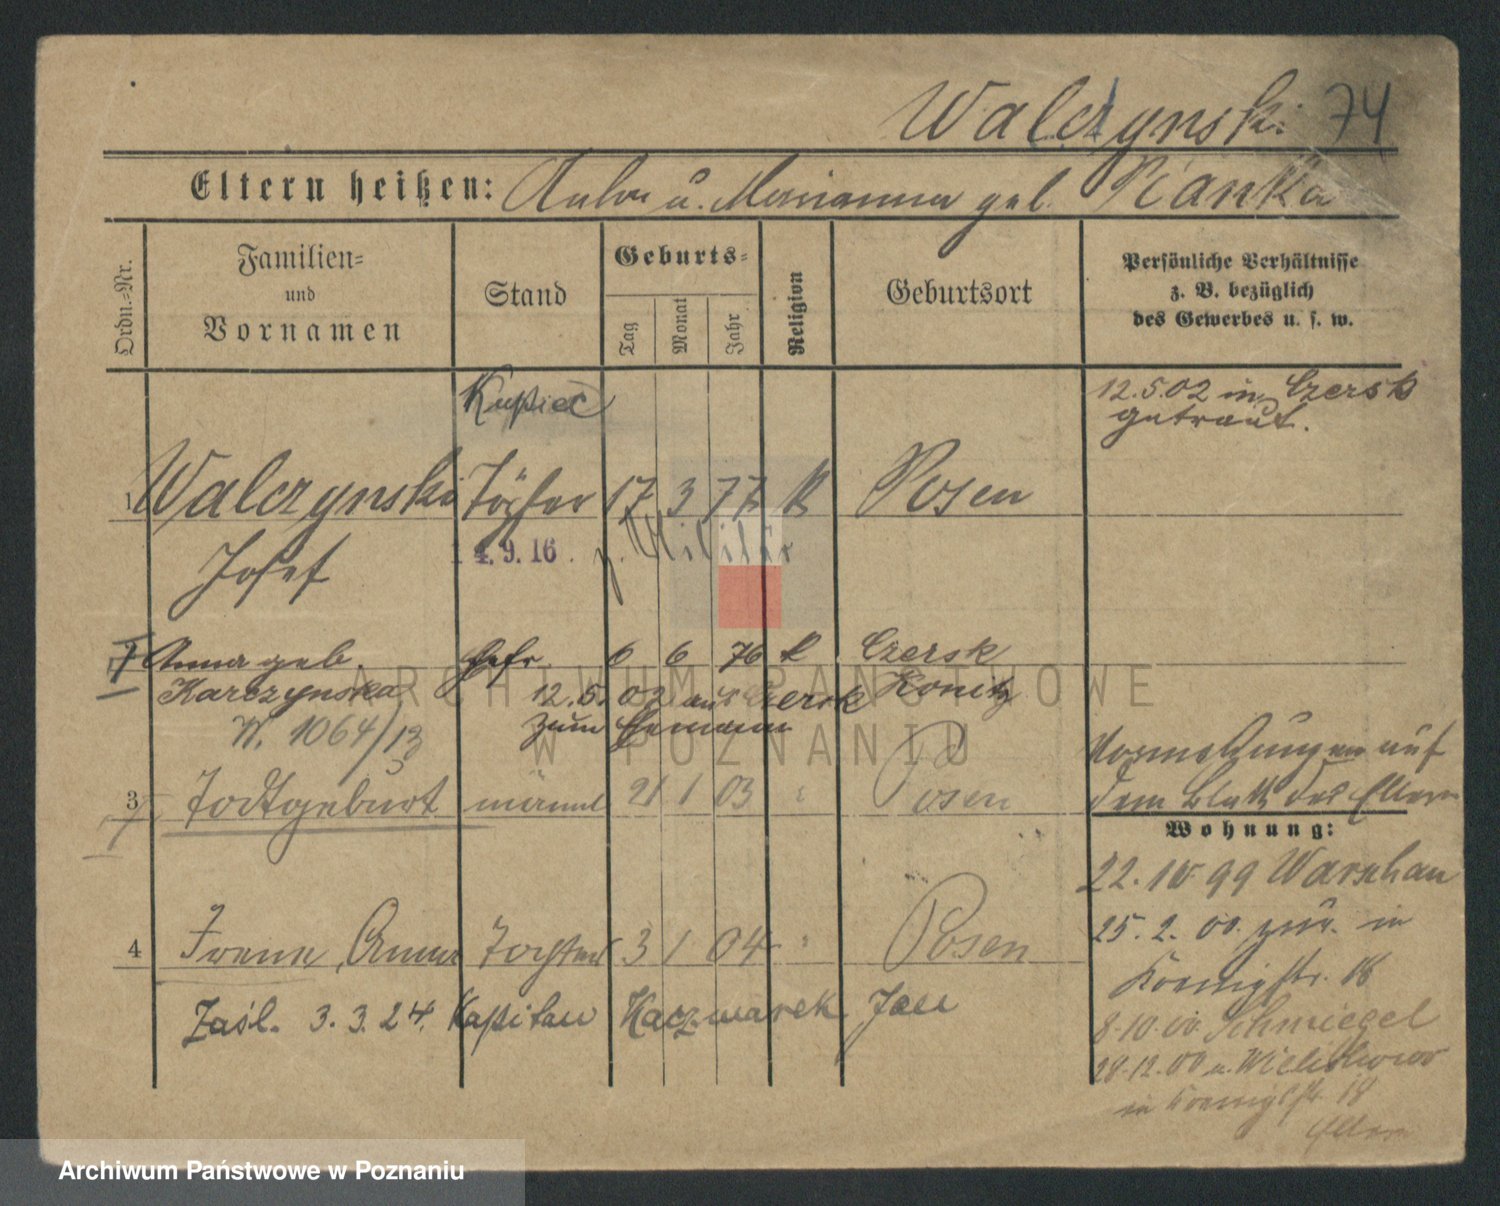 Walczynski 74
Eltern heißen: Anton u. Marianna geb. Pianka
Ordn.=Nr.
Familien=
und
Vornamen
Stand
Geburts=
Tag
Monat
Jahr
Religion
Geburtsort
Persönliche Verhältnisse
z. B. bezüglich
des Gewerbes u. s. w.
Kupiec
12.5.02 in Czersk
getraut.
1 Walczynski Töpfer 17 3 77 K Posen
Josef
14.9.16. z. Militär
Anna geb. Ehefr. 6 6 76 K Czersk
Karczynska 12.5.02 aus Czersk Konitz
zum Ehemann
N. 1064/13
3 Todtgeburt männl 21 1 03 " Posen
Vormeldungen auf
dem Blatt der Eltern
Wohnung:
22. 10 99 Warschau
25. 2. 00. zur. in
4 Irene, Anna Tochter 3 1 04 " Posen
Koenigstr. 18
Zaśl. 3. 3. 24. Kapitan Kaczmarek Jan
8.10.00. Schmiegel
28.12.00 v. Wielichowo
in Koenigstr. 18
Eltern
ARCHIWUM PAŃSTWOWE
W POZNANIU
Archiwum Państwowe w Poznaniu